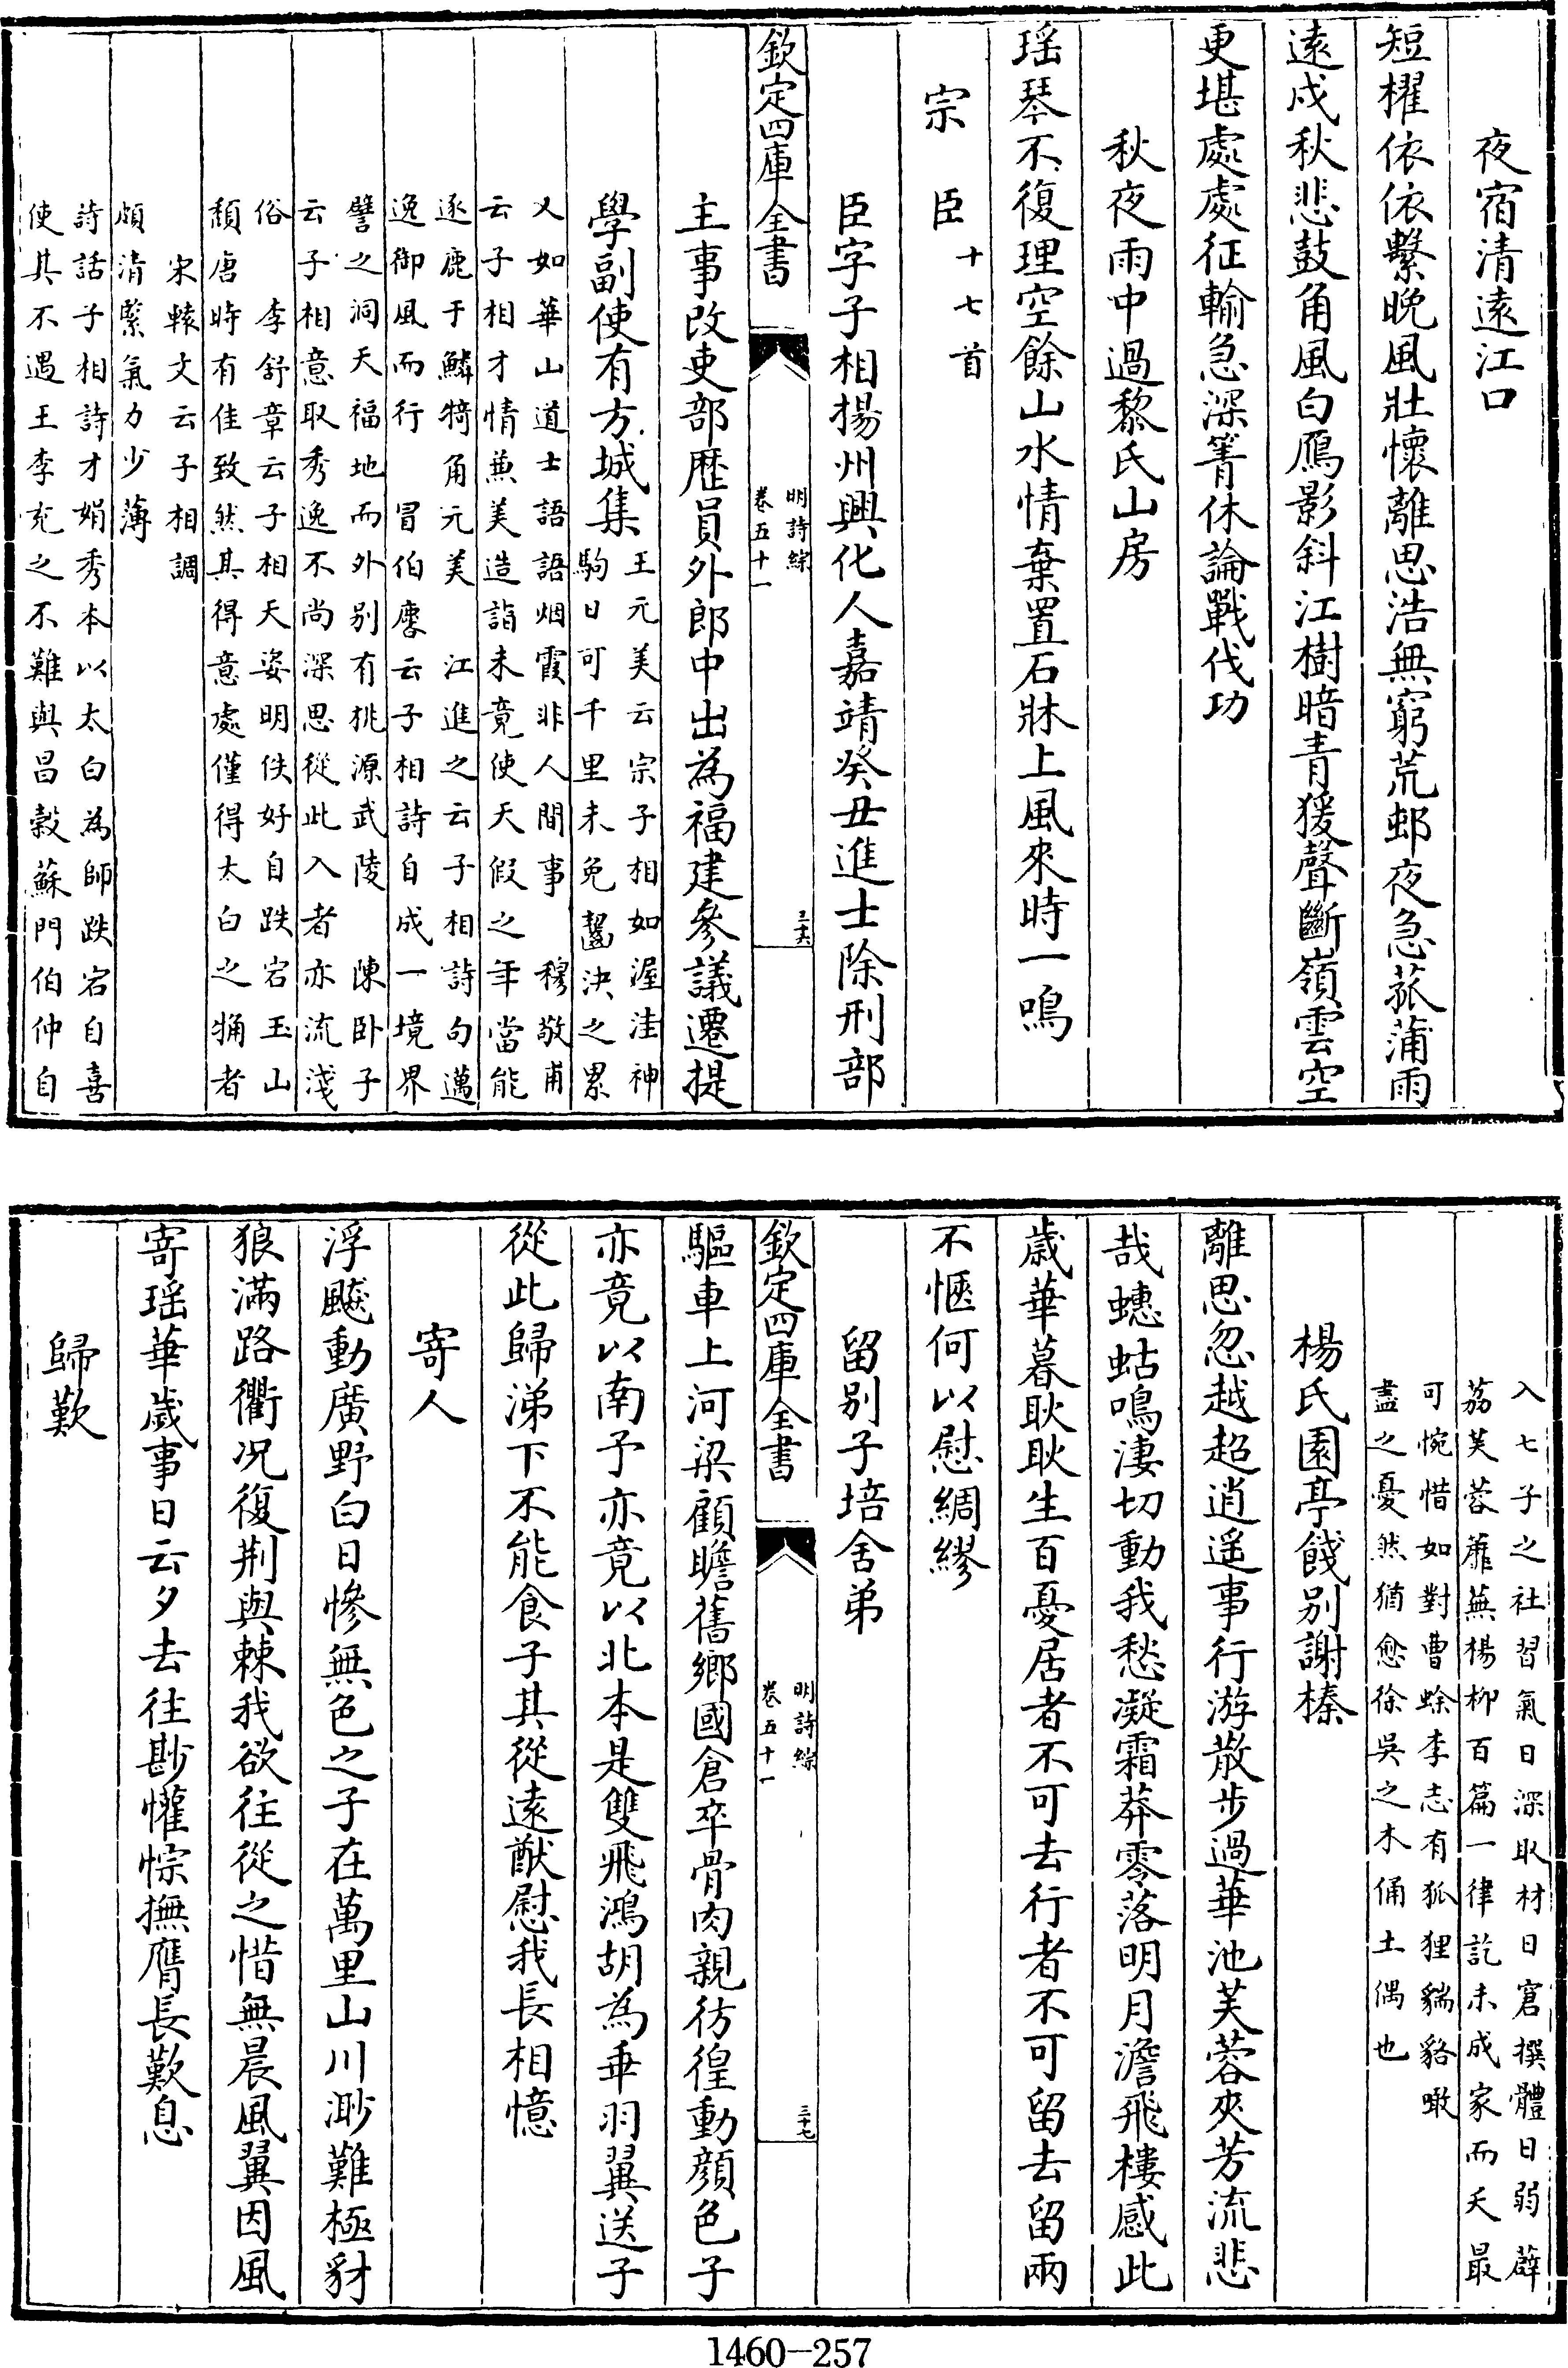 夜宿清遠江口
短櫂依依繫晚風壯懷離思浩無窮荒邨夜急菰蒲雨
遠戍秋悲鼓角風白鴈影斜江樹暗青猨聲斷嶺雲空
更堪處處征輸急深箐休論戰伐功
秋夜雨中過黎氏山房
瑶琴不復理空餘山水情棄置石牀上風來時一鳴
宗臣十七首
臣字子相揚州興化人嘉靖癸丑進士除刑部
欽定四庫全書
明詩綜
卷五十一
三十六
主事改吏部歴員外郎中出為福建參議遷提
學副使有方城集
王元美云宗子相如渥洼神
駒日可千里未免齧決之累
又如華山道士語語烟霞非人間事 穆敬甫
云子相才情兼美造詣未竟使天假之年當能
逐鹿于鱗犄角元美 江進之云子相詩句邁
逸御風而行 冒伯麐云子相詩自成一境界
譬之洞天福地而外别有桃源武陵 陳卧子
云子相意取秀逸不尚深思從此入者亦流淺
俗 李舒章云子相天姿明佚好自跌宕玉山
頽唐時有佳致然其得意處僅得太白之觕者
宋轅文云子相調
頗清緊氣力少薄
詩話子相詩才娟秀本以太白為師跌宕自喜
使其不遇王李充之不難與昌穀蘇門伯仲自
入七子之社習氣日深取材日窘撰體日弱薜
荔芙蓉蘼蕪楊柳百篇一律訖未成家而夭最
可惋惜如對曹蜍李志有狐狸貒貉噉
盡之憂然猶愈徐吳之木俑土偶也
楊氏園亭餞别謝榛
離思忽越超逍遥事行游散步過華池芙蓉夾芳流悲
哉蟪蛄鳴淒切動我愁凝霜莽零落明月澹飛樓感此
歲華暮耿耿生百憂居者不可去行者不可留去留兩
不愜何以慰綢繆
留别子培舍弟
欽定四庫全書
明詩綜
卷五十一
三十七
驅車上河梁顧瞻舊鄉國倉卒骨肉親彷徨動顔色子
亦竟以南予亦竟以北本是雙飛鴻胡為垂羽翼送子
從此歸涕下不能食子其從遠猷慰我長相憶
寄人
浮飈動廣野白日慘無色之子在萬里山川渺難極豺
狼滿路衢况復荆與棘我欲往從之惜無晨風翼因風
寄瑶華歲事日云夕去往尠懽悰撫膺長歎息
歸歎
1460-257